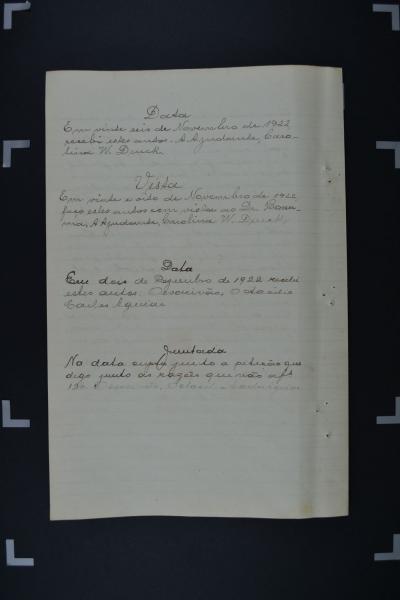 Data
Em vinte seis de Novembro de 1922
recebi estes autos. A Ajudante, Caro-
lina W. Druck.
Vista
Em vinte e oito de Novembro de 1922
faço estes autos com vista ao Dr.
A Ajudante, Carolina W. Druck.
Data
Em dois de Dezembro de 1922 recebi
estes autos. O escrivão, Octacilio
Carlos
Juntada
Na data supra junto a petição que
digo junto as razões que vão a fs
O escrivão,